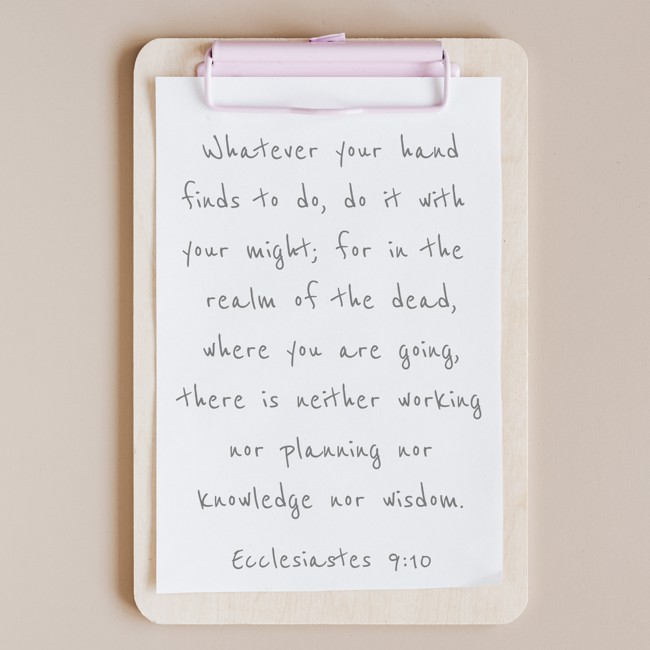 Whatever your hand
finds to do, do it with
your might; for in the
realm of the dead,
where you are going,
there is neither working
nor planning nor
knowledge nor wisdom.
Ecclesiastes 9:10